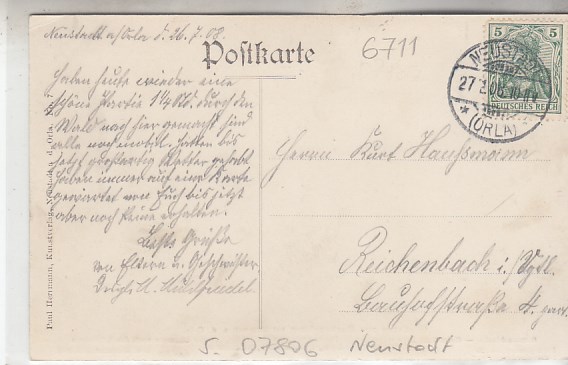 Neustadt a/Orla d. 26.7.08.
Postkarte
6711
5 5
DEUTSCHES REICH
NEUSTADT
27.7.08. 10-11V
* (ORLA)
Haben heute wieder eine
schöne Partie 1¼ Std. durch den
Wald nach hier gemacht sind
alle noch mobil. Hatten bis
jetzt großartig Wetter gehabt
haben immer auf eine Karte
gewartet von Euch bis jetzt
aber noch keine erhalten.
Beste Grüße
von Eltern u. Geschwister
Herrn Kurt Haußmann
Reichenbach i./Vgtl.
Bauhofstraße 4. part.
Paul Herrmann, Kunstverlag, Neustadt a. d. Orla.
S. 07806 Neustadt